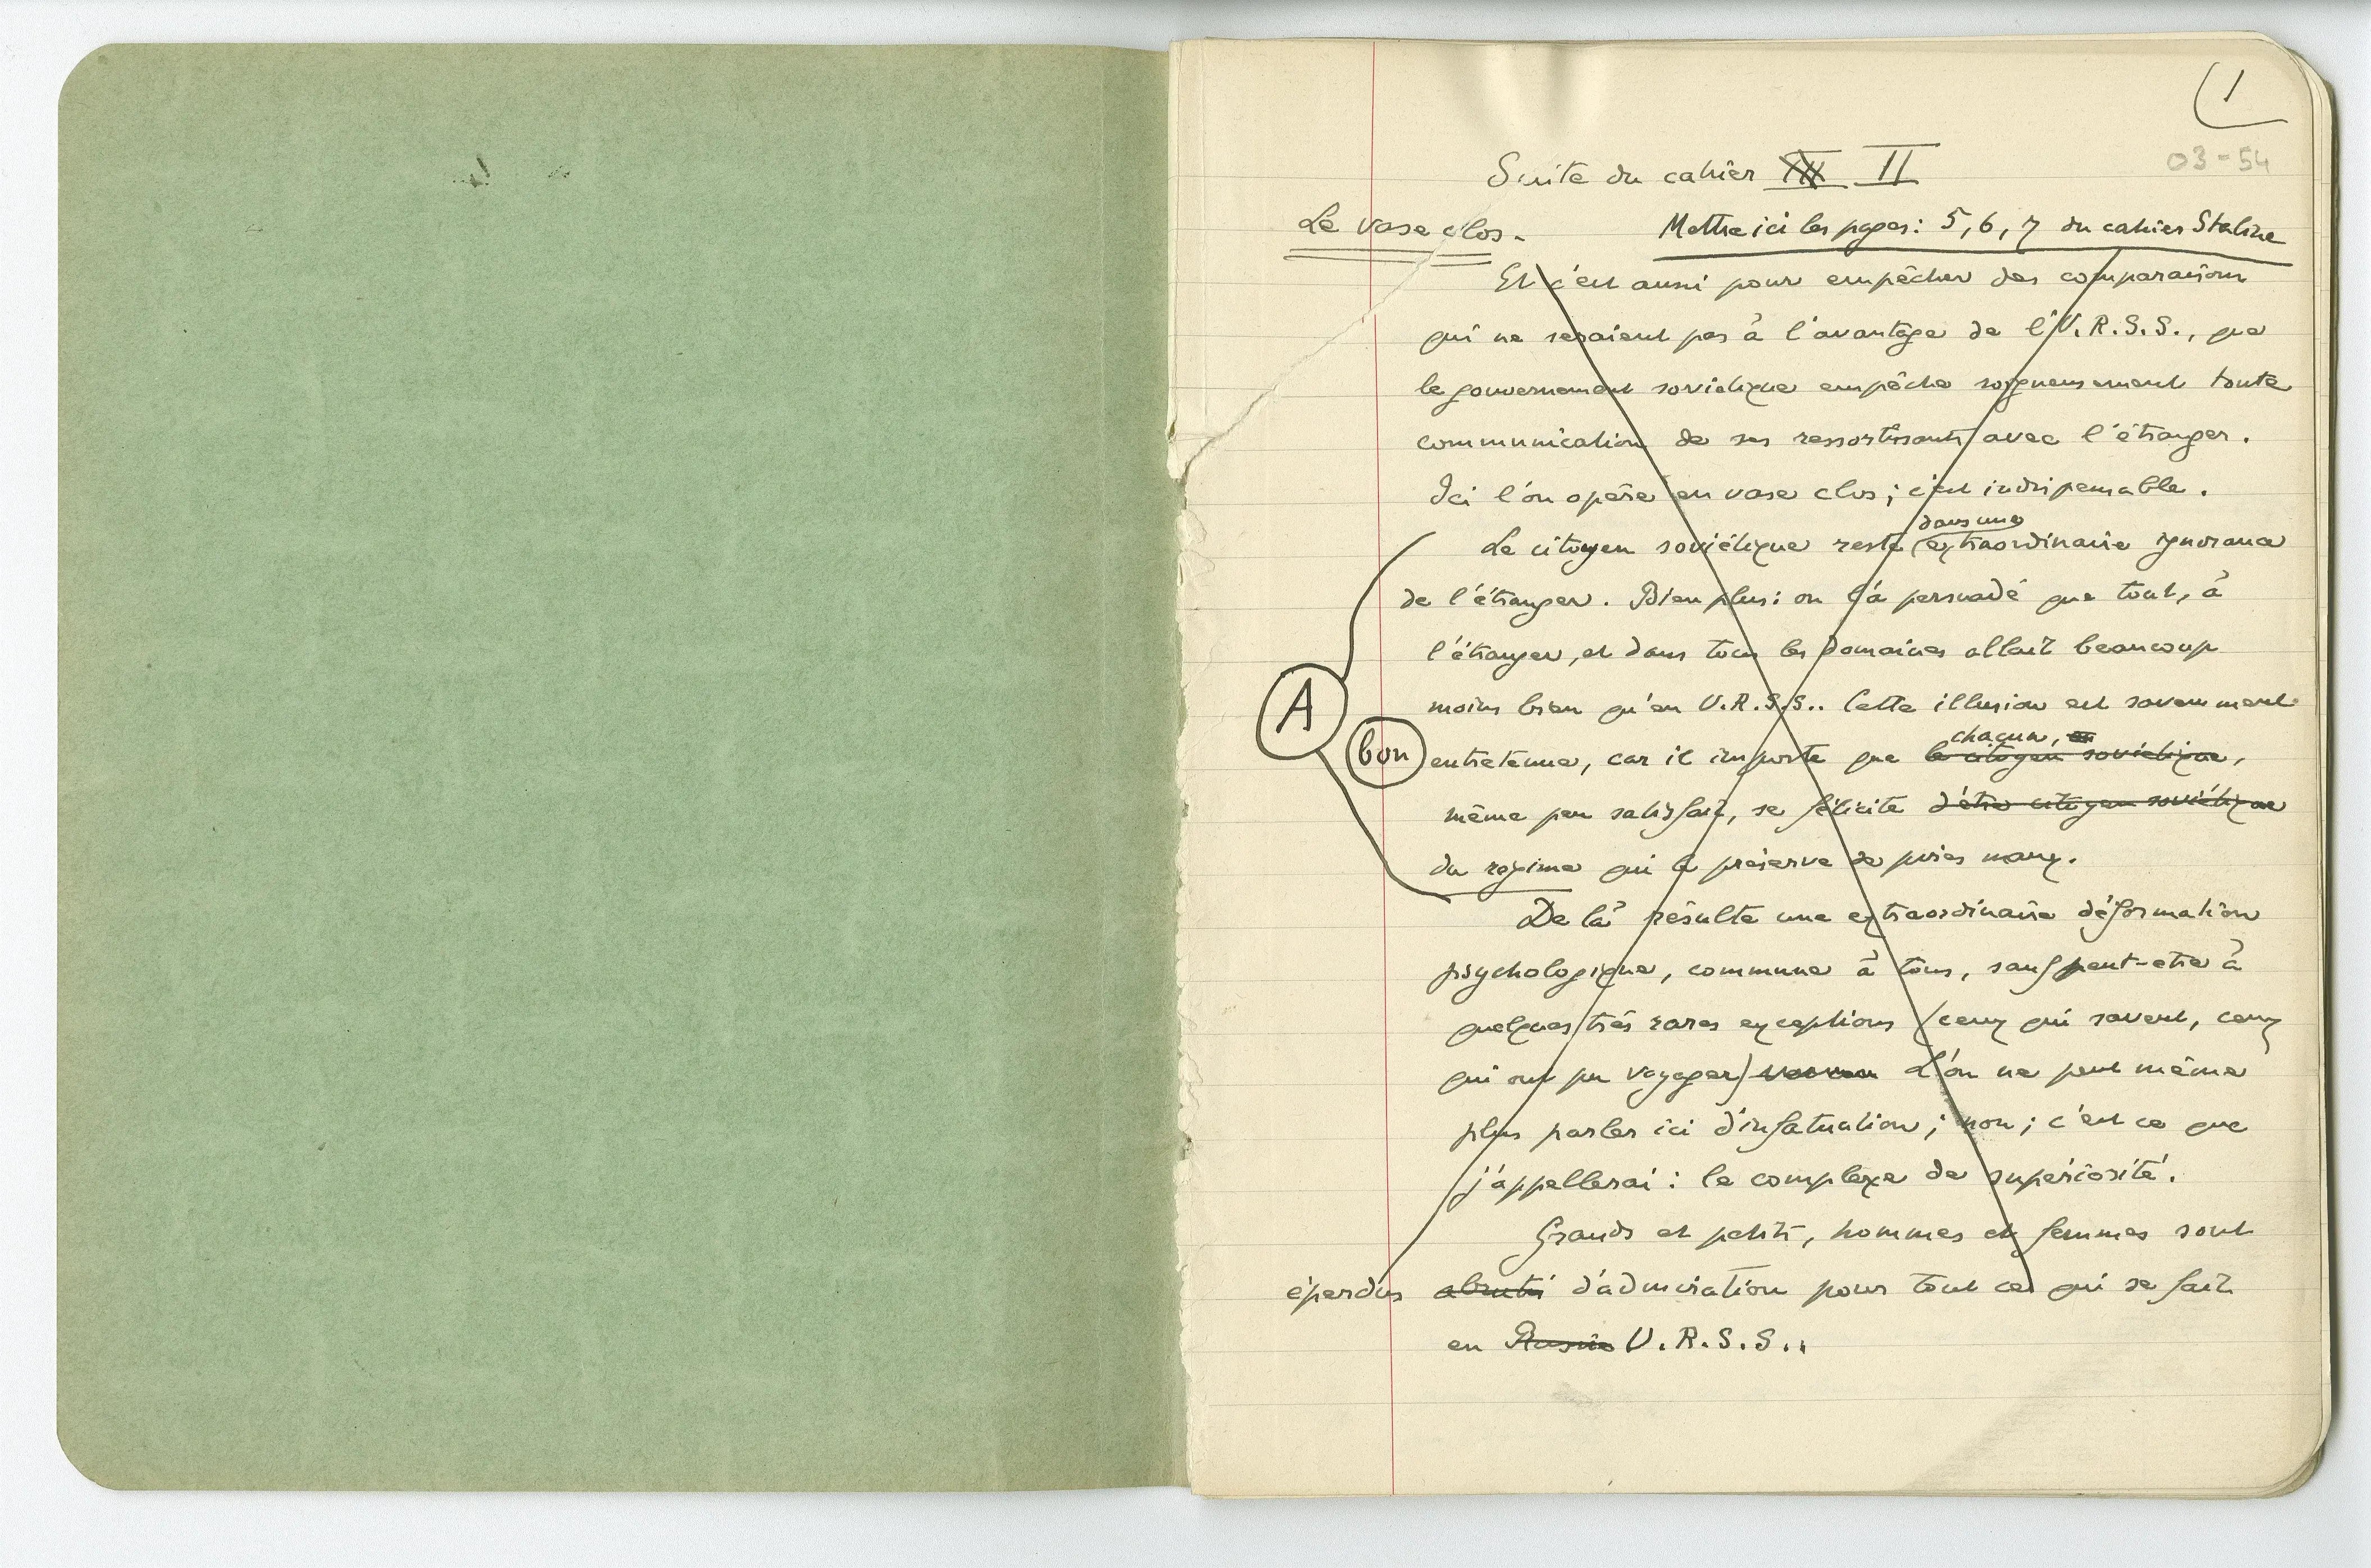 1
03-54
Suite du cahier III II
Le vase clos. Mettre ici les pages: 5, 6, 7 du cahier Staline
Et c'est aussi pour empêcher des comparaisons
qui ne seraient pas à l'avantage de l'U.R.S.S., que
le gouvernement soviétique empêche soigneusement toute
communication de ses ressortissants avec l'étranger.
Ici l'on opère en vase clos; c'est indispensable.
dans une
Le citoyen soviétique reste extraordinaire ignorance
de l'étranger. Bien plus: on l'a persuadé que tout, à
l'étranger, et dans tous les domaines allait beaucoup
moins bien qu'en U.R.S.S.. Cette illusion est savamment
A
chacun,
bon entretenue, car il importe que le citoyen soviétique,
même peu satisfait, se félicite d'être citoyen soviétique
du régime qui le préserve de pires maux.
De là résulte une extraordinaire déformation
psychologique, commune à tous, sauf peut-etre à
quelques très rares exceptions (ceux qui savent, ceux
qui ont pu voyager) L'on ne peut même
plus parler ici d'infatuation; non; c'est ce que
j'appellerai: le complexe de supériorité.
Grands et petits, hommes et femmes sont
éperdus abrutis d'admiration pour tout ce qui se fait
en Russie U.R.S.S..